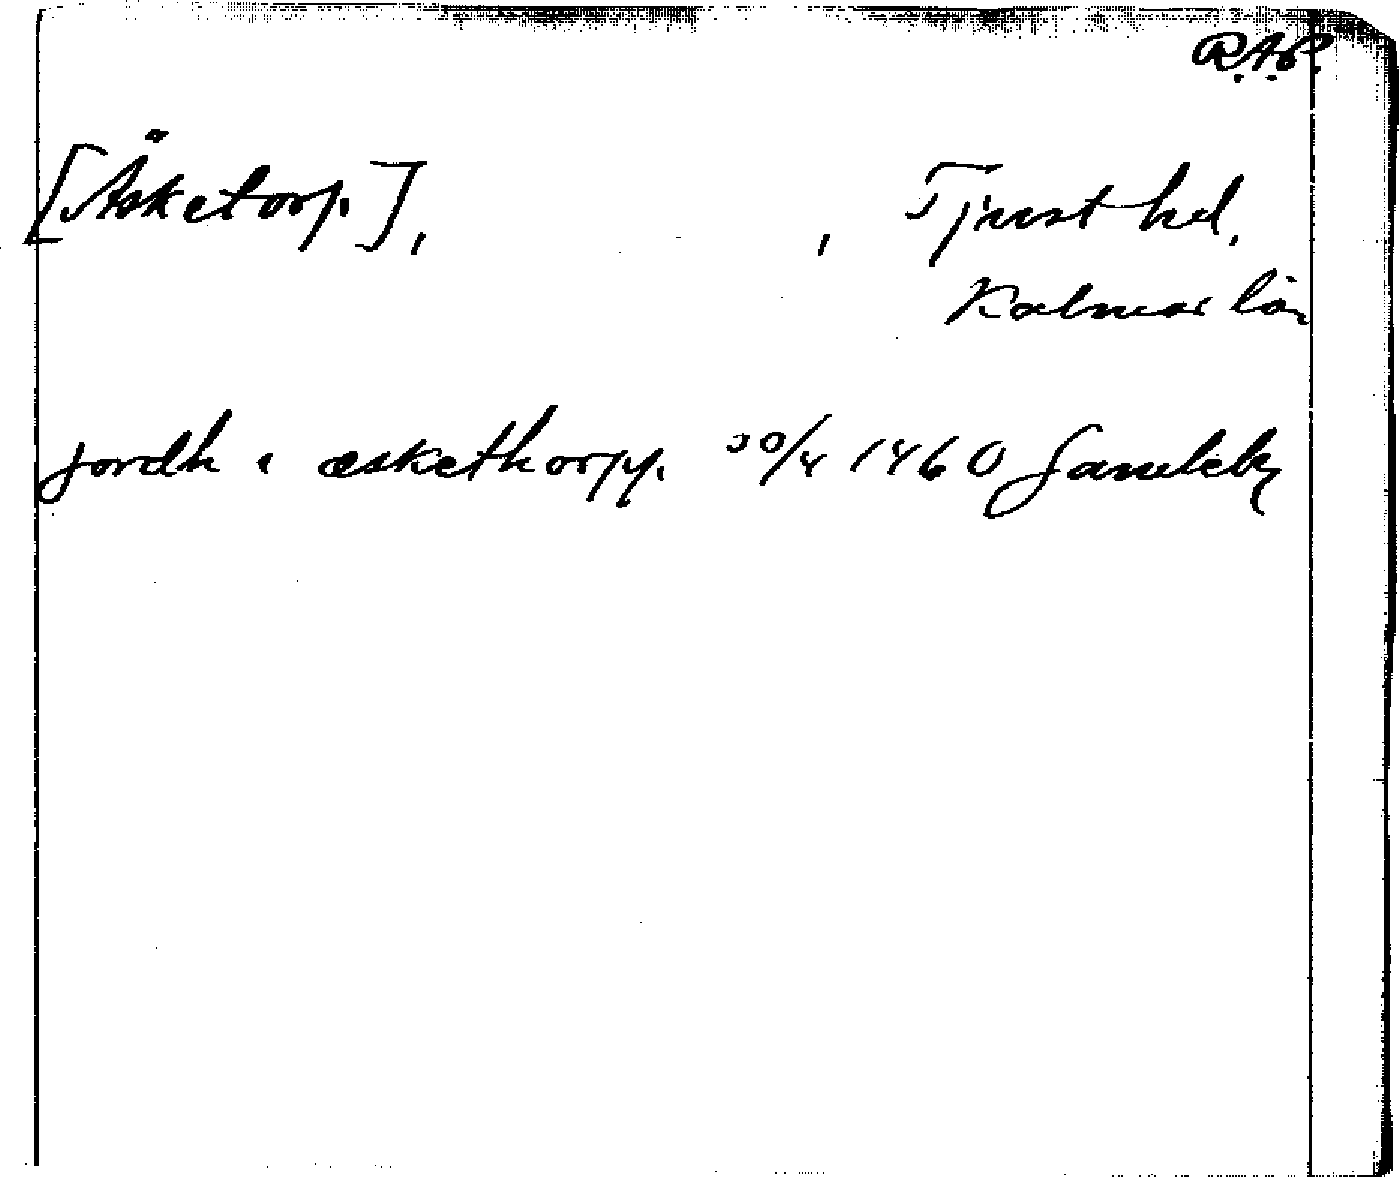 R.A.P.
[Äsketorp.], , Tjust hd,
Kalmar län
jordh i æskethorpp. 30/4 1460 Gamleby